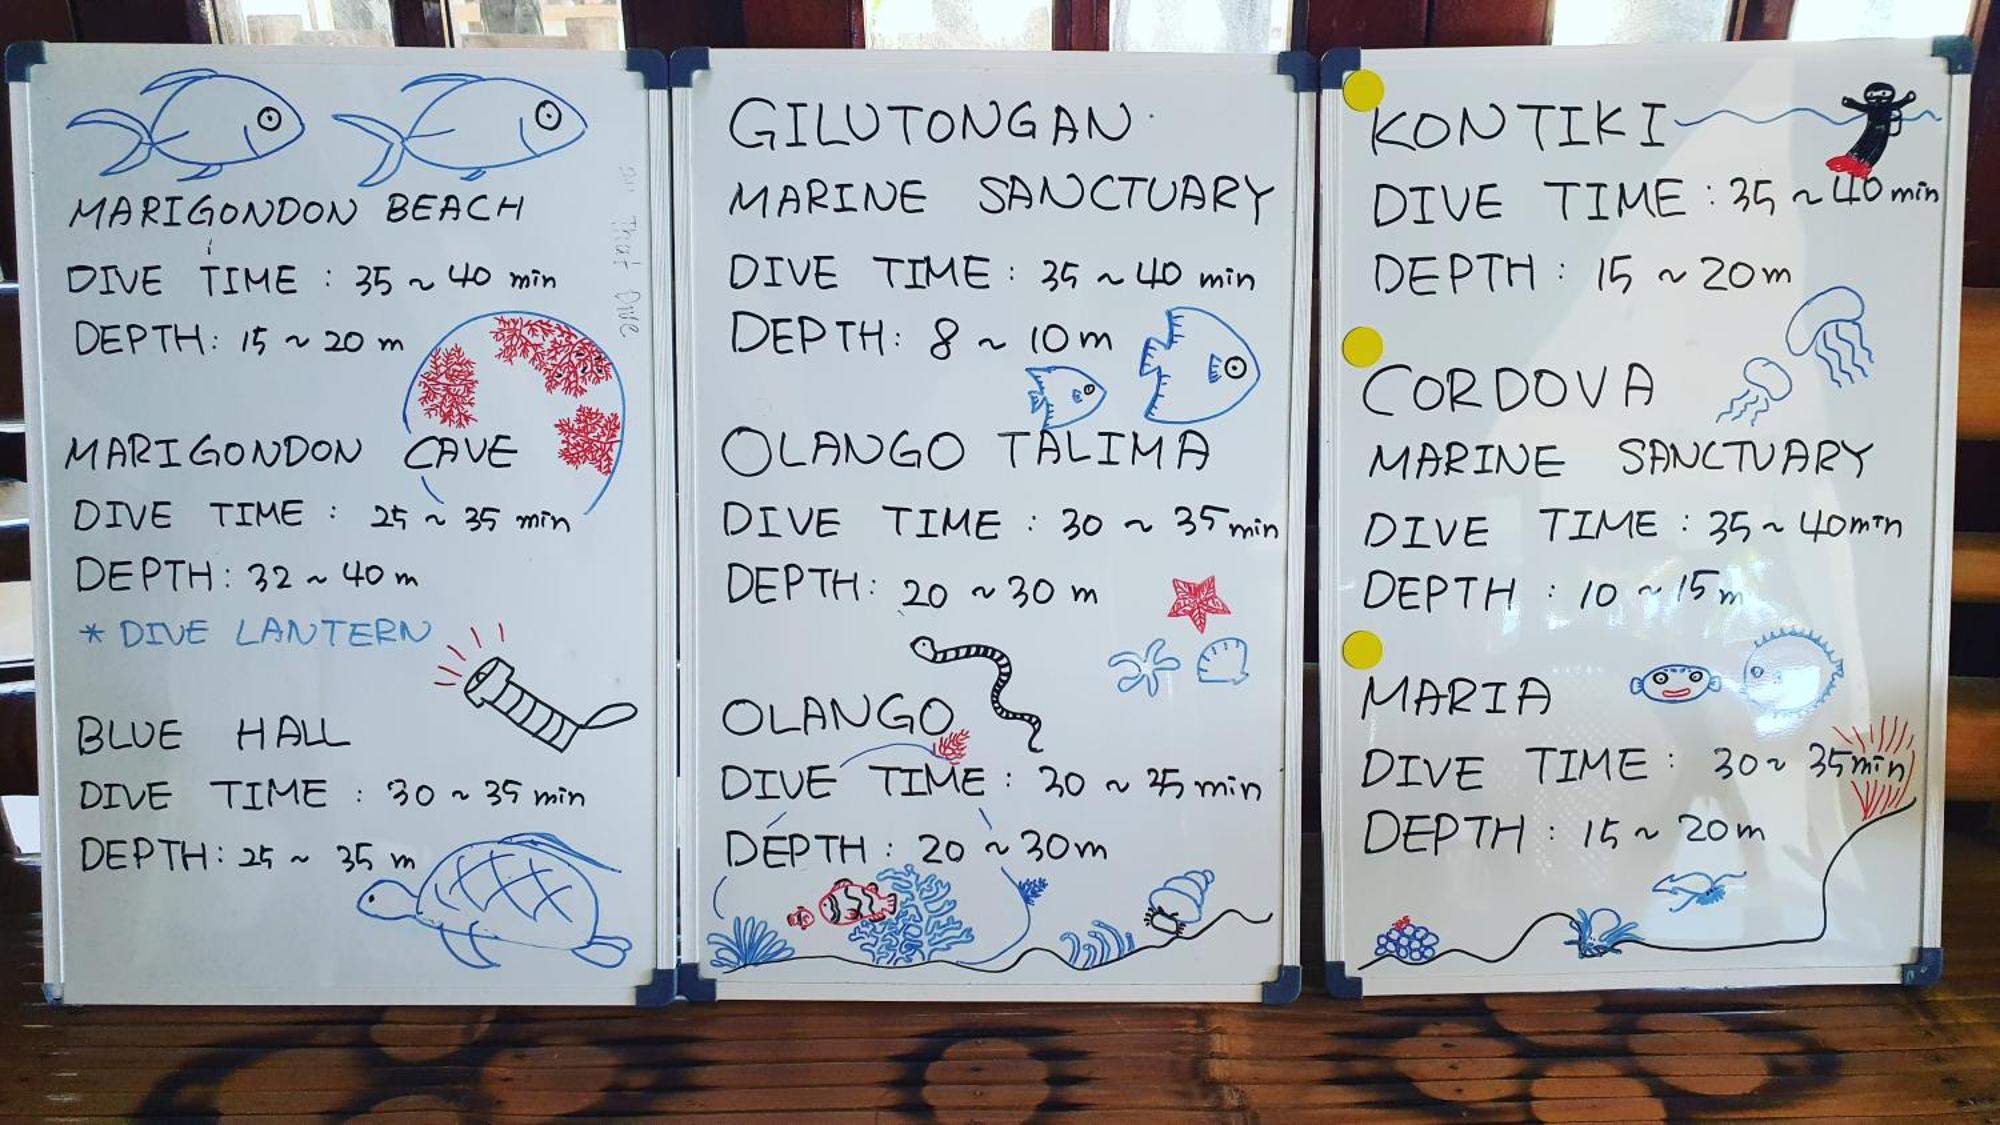 MARIGONDON BEACH
DIVE TIME : 35 ~ 40 min
DEPTH: 15 ~ 20 m
MARIGONDON CAVE
DIVE TIME : 25 ~ 35 min
DEPTH: 32 ~ 40 m
* DIVE LANTERN
BLUE HALL
DIVE TIME : 30 ~ 35 min
DEPTH: 25 ~ 35 m
That Dive
GILUTONGAN
MARINE SANCTUARY
DIVE TIME : 35 ~ 40 min
DEPTH: 8 ~ 10 m
OLANGO TALIMA
DIVE TIME : 30 ~ 35 min
DEPTH: 20 ~ 30 m
OLANGO
DIVE TIME : 30 ~ 35 min
DEPTH : 20 ~ 30m
KONTIKI
DIVE TIME : 35 ~ 40 min
DEPTH : 15 ~ 20m
CORDOVA
MARINE SANCTUARY
DIVE TIME : 35 ~ 40min
DEPTH : 10 ~ 15m
MARIA
DIVE TIME : 30 ~ 35min
DEPTH : 15 ~ 20m